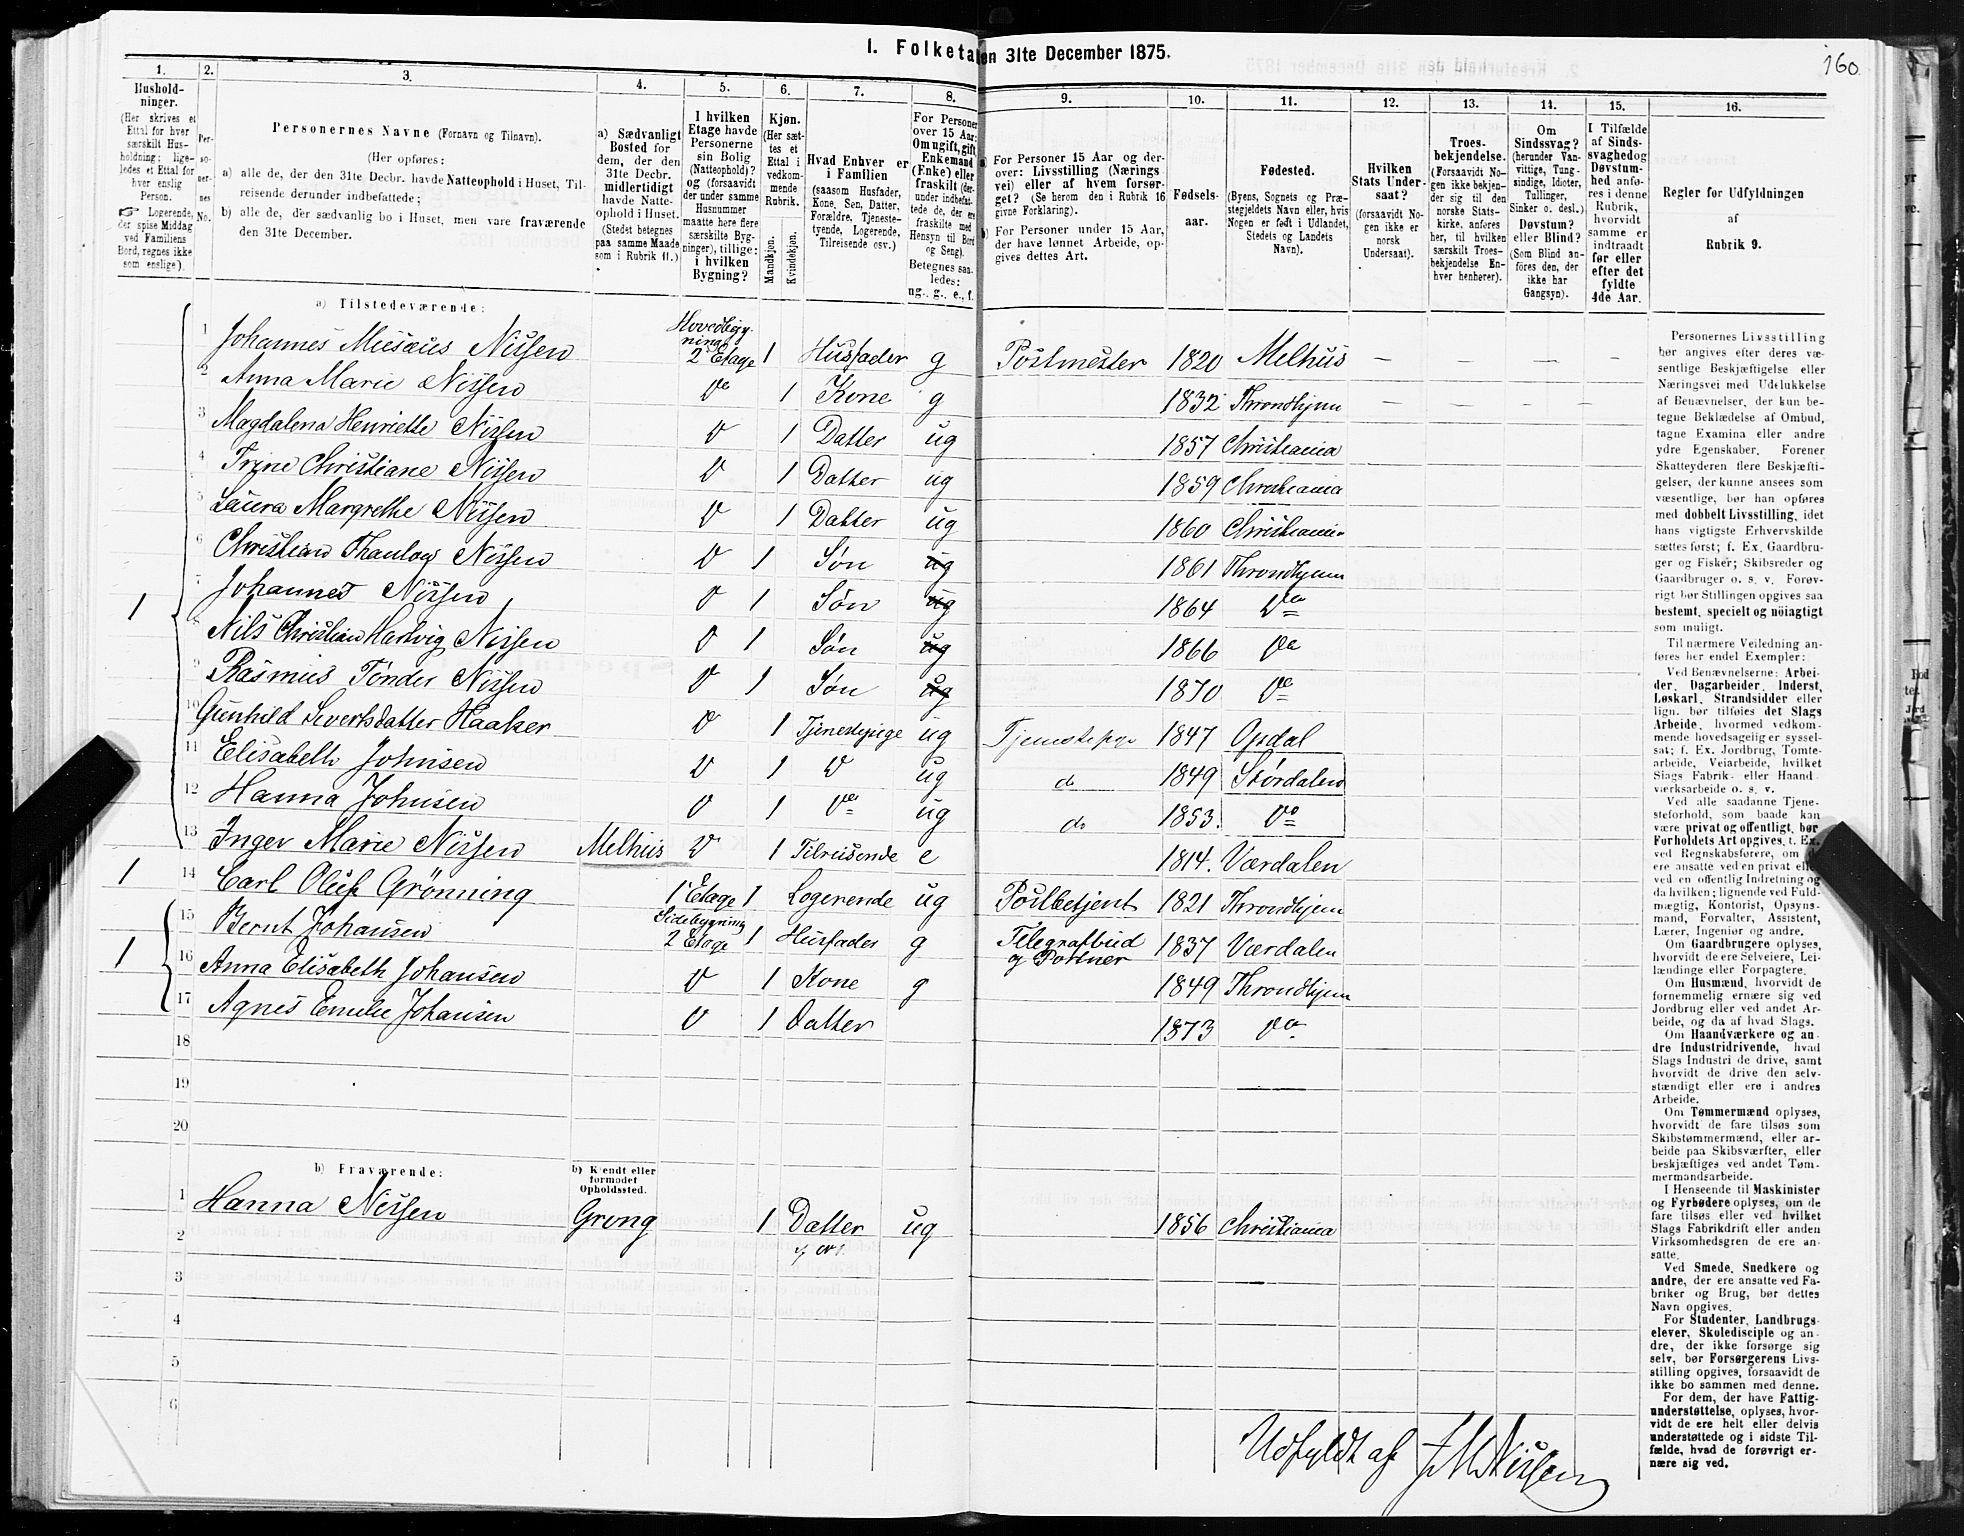 160.
I. Folketallen 31te December 1875.
1. 2. 3. 4. 5. 6. 7. 8. 9. 10. 11. 12. 13. 14. 15. 16.
Husholdninger.
(Her skrives et Ettal for hver særskilt Husholdning; ligeledes et Ettal for hver enslig Person.
☞ Logerende, der spise Middag ved Familiens Bord, regnes ikke som enslige).
Personernes No.
Personernes Navne (Fornavn og Tilnavn).
(Her opføres:
a) alle de, der den 31te Decbr. havde Natteophold i Huset, Tilreisende derunder indbefattede;
b) alle de, der sædvanlig bo i Huset, men vare fraværende den 31te December.
a) Sædvanligt Bosted for dem, der den 31te Decbr. midlertidigt havde Natteophold i Huset. (Stedet betegnes paa samme Maade som i Rubrik 11.)
I hvilken Etage havde Personerne sin Bolig (Natteophold)? og (forsaavidt der under samme Husnummer maatte høre flere særskilte Bygninger), tillige: i hvilken Bygning?
Kjøn.
(Her sættes et Ettal i vedkommende Rubrik.
Mandkjøn.
Kvindekjøn.
Hvad Enhver er i Familien
(saasom Husfader, Kone, Søn, Datter, Forældre, Tjenestetyende, Logerende, Tilreisende osv.)
For Personer over 15 Aar: Om ugift, gift, Enkemand (Enke) eller fraskilt (derunder indbefattede de, der ere fraskilte med Hensyn til Bord og Seng).
Betegnes saaledes:
ug., g., e., f.
a) For Personer 15 Aar og derover: Livsstilling (Næringsvei) eller af hvem forsørget? (Se herom den i Rubrik 16 givne Forklaring).
b) For Personer under 15 Aar, der have lønnet Arbeide, opgives dettes Art.
Fødselsaar.
Fødested.
(Byens, Sognets og Præstegjeldets Navn eller, hvis Nogen er født i Udlandet, Stedets og Landets Navn).
Hvilken Stats Undersaat?
(forsaavidt Nogen ikke er norsk Undersaat).
Troesbekjendelse.
(Forsaavidt Nogen ikke bekjender sig til den norske Statskirke, anføres her, til hvilken særskilt Troesbekjendelse Enhver henhører).
Om Sindssvag? (herunder Vanvittige, Tungsindige, Idioter, Tullinger, Sinker o. desl.) Døvstum? eller Blind? (Som Blind anføres den, der ikke har Gangsyn).
I Tilfælde af Sindssvaghed og Døvstumhed anføres i denne Rubrik, hvorvidt samme er indtraadt før eller efter det fyldte 4de Aar.
Regler for Udfyldningen af Rubrik 9.
a) Tilstedeværende:
1 Johannes Musæus Nissen Hovedbygning 2 Etage 1 Husfader g Postmester 1820 Melhus — — — —
2 Anna Marie Nissen Do 1 Kone g 1832 Throndhjem — — — —
3 Magdalena Henriette Nissen D 1 Datter ug 1857 Christiania
4 Trine Christiane Nissen D 1 Datter ug 1859 Christiania
5 Laura Margrethe Nissen D 1 Datter ug 1860 Christiania
6 Christian Thaulow Nissen D 1 Søn ug 1861 Throndhjem
1 7 Johannes Nissen D 1 Søn ug 1864 Do
8 Nils Christian Hartvig Nissen D 1 Søn ug 1866 Do
9 Rasmus Tønder Nissen D 1 Søn ug 1870 Do
10 Gunhild Sivertsdatter Haaker D 1 Tjenestepige ug Tjenestepige 1847 Opdal
11 Elisabeth Johnsen D 1 D ug do 1849 Størdalen
12 Hanna Johnsen D 1 Do ug do 1853. Do
13 Inger Marie Nissen Melhus D 1 Tilreisende e 1814. Værdalen
1 14 Carl Oluf Grønning 1 Etage 1 Logerende ug Postbetjent 1821 Throndhjem
15 Bernt Johansen Sidebygning 2 Etage 1 Husfader g Telegrafbud og Portner 1837 Værdalen
1 16 Anna Elisabeth Johansen D 1 Kone g 1849 Throndhjem
17 Agnes Emilie Johansen D 1 Datter 1873 Do
18
19
20
b) Fraværende:
b) Kjendt eller formodet Opholdssted.
1 Hanna Nissen Grong 1 Datter ug 1856 Christiania
2 af No 1.
3
4
5
6
Udfyldt af J M Nissen
Personernes Livsstilling
bør angives efter deres væ-
sentlige Beskjæftigelse eller
Næringsvei med Udelukkelse
af Benævnelser, der kun be-
tegne Beklædelse af Ombud,
tagne Examina eller andre
ydre Egenskaber. Forener
Skatteyderen flere Beskjæfti-
gelser, der kunne ansees som
væsentlige, bør han opføres
med dobbelt Livsstilling, idet
hans vigtigste Erhvervskilde
sættes først; f. Ex. Gaardbru-
ger og Fisker; Skibsreder og
Gaardbruger o. s. v. Forøv-
rigt bør Stillingen opgives saa
bestemt, specielt og nøiagtigt
som muligt.
Til nærmere Veiledning an-
føres her endel Exempler:
Ved Benævnelserne: Arbei-
der, Dagarbeider, Inderst,
Løskarl, Strandsidder eller
lign. bør tilføies det Slags
Arbeide, hvormed vedkom-
mende hovedsagelig er syssel-
sat; f. Ex. Jordbrug, Tomte-
arbeide, Veiarbeide, hvilket
Slags Fabrik- eller Haand-
værksarbeide o. s. v.
Ved alle saadanne Tjene-
steforhold, som baade kan
være privat og offentligt, bør
Forholdets Art opgives, f. Ex.
ved Regnskabsførere, om de
ere ansatte ved en privat eller
ved en offentlig Indretning og
da hvilken; lignende ved Fuld-
mægtig, Kontorist, Opsyns-
mand, Forvalter, Assistent,
Lærer, Ingeniør og andre.
Om Gaardbrugere oplyses,
hvorvidt de ere Selveiere, Lei-
lændinge eller Forpagtere.
Om Husmænd, hvorvidt de
fornemmelig ernære sig ved
Jordbrug eller ved andet Ar-
beide, og da af hvad Slags.
Om Haandværkere og an-
dre Industridrivende, hvad
Slags Industri de drive, samt
hvorvidt de drive den selv-
stændigt eller ere i andres
Arbeide.
Om Tømmermænd oplyses,
hvorvidt de fare tilsøs som
Skibstømmermænd, eller ar-
beide paa Skibsværfter, eller
beskjæftiges ved andet Tøm-
mermandsarbeide.
I Henseende til Maskinister
og Fyrbødere oplyses, om de
fare tilsøs eller ved hvilket
Slags Fabrikdrift eller anden
Virksomhedsgren de ere an-
satte.
Ved Smede, Snedkere og
andre, der ere ansatte ved Fa-
briker og Brug, bør dettes
Navn opgives.
For Studenter, Landbrugs-
elever, Skoledisciple og an-
dre, der ikke forsørge sig
selv, bør Forsørgerens Livs-
stilling opgives, forsaavidt de
ikke bo sammen med denne.
For dem, der have Fattig-
understøttelse, oplyses, hvor-
vidt de ere helt eller delvis
understøttede og i sidste Til-
fælde, hvad de forøvrigt er-
nære sig ved.